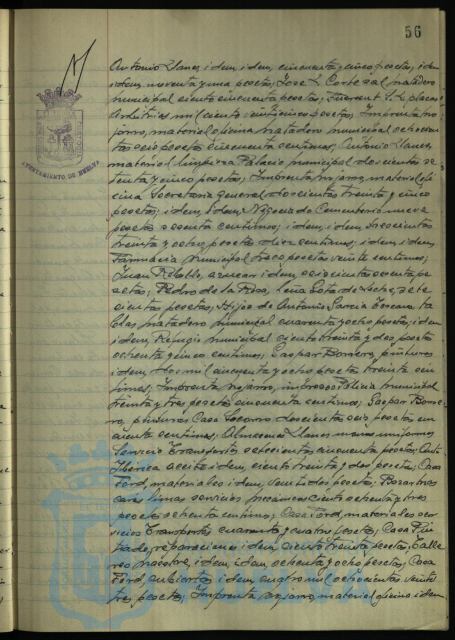 56
AYUNTAMIENTO DE HUELVA
Antonio Llanes, idem idem, cincuenta y cinco pesetas, idem
idem noventa y una pesetas; José L. Cortezal matadero
municipal ciento cincuenta pesetas; S. L. placas
industrias mil ciento cinco pesetas; Imprenta
material oficina matadero municipal ochocien
tas seis pesetas cincuenta centimos; Antonio Llanes,
material limpieza Palacio municipal doscientos se
tenta y cinco pesetas; Imprenta material ofi
cina Secretaria general doscientas treinta y cinco
pesetas; idem, idem Negociado Cementerio nueve
pesetas sesenta centimos; idem, idem, trescientas
treinta y ocho pesetas diez centimos; idem, idem,
Farmacia municipal trece pesetas veinte centimos;
Juan azucar idem seiscientas pe
setas; Pedro de la Rosa, Gota de Leche, sete
cientas pesetas; Hijo de Antonio Garcia
matadero municipal cuarenta y ocho pesetas; idem
idem, Refugio municipal ciento treinta y dos pesetas
ochenta y cinco centimos; Gaspar Borrero, pinturas
idem, dos mil cincuenta y ocho pesetas treinta cen
timos; Imprenta impresos Policia municipal
treinta y tres pesetas cincuenta centimos; Gaspar Borre
ro, pinturas Casa Socorro doscientas seis pesetas cin
cuenta centimos; Almacenes Llanes uniformes
Servicio Transportes setecientas cincuenta pesetas;
Iberica aceite idem, ciento treinta y dos pesetas; Casa
Ford, materiales idem, pesetas;
limas servicios mecanicos ciento ochenta y tres
pesetas ochenta centimos; Casa Ford, materiales ser
vicios Transportes cuarenta y cuatro pesetas; Casa Pin
tado, reparaciones idem, ciento treinta pesetas; Talle
res idem, idem, ochenta y ocho pesetas; Casa
Ford, cubiertas idem cuatro mil ochocientas veinti
tres pesetas; Imprenta material oficina idem